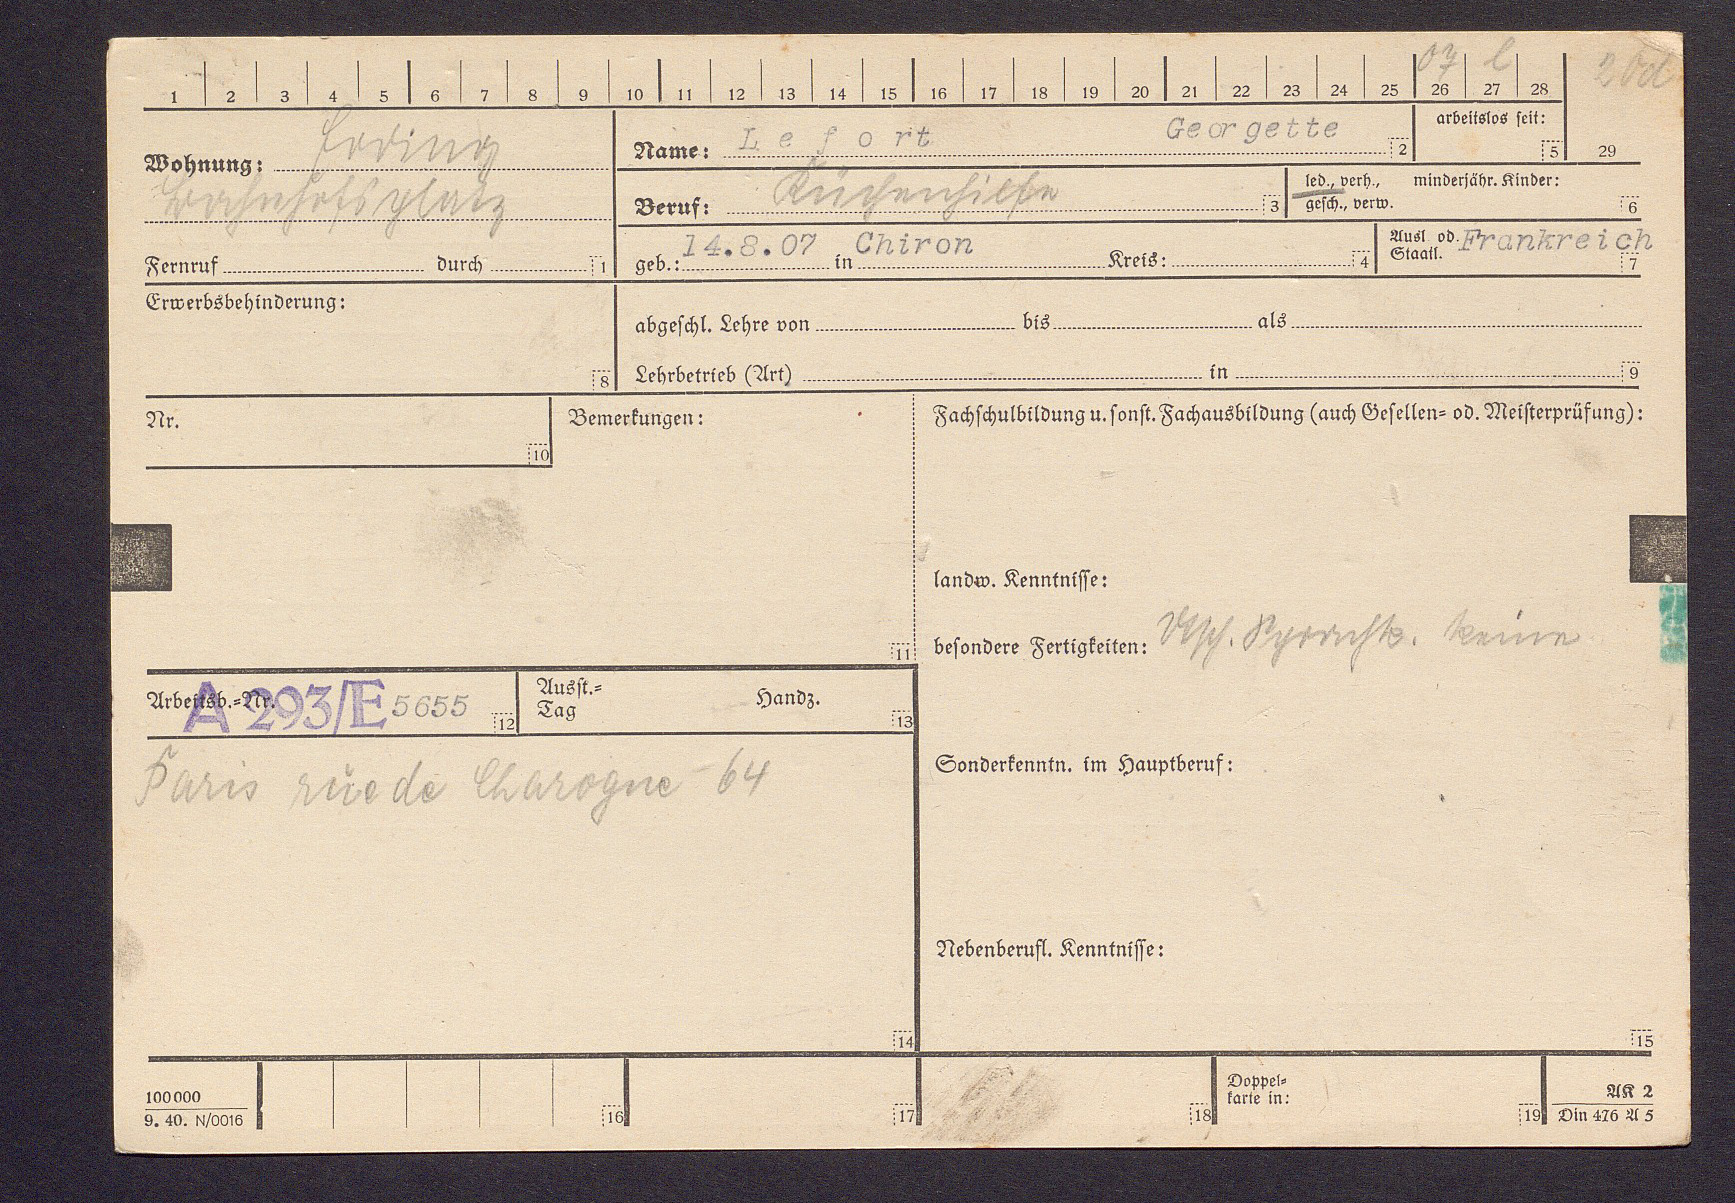 07 l 20d
1 2 3 4 5 6 7 8 9 10 11 12 13 14 15 16 17 18 19 20 21 22 23 24 25 26 27 28 29
Wohnung: Erding
Bahnhofsplatz
Fernruf durch 1
Name: Lefort Georgette 2
arbeitslos seit: 5
Beruf: Küchenhilfe 3
led., verh., minderjähr. Kinder:
gesch., verw. 6
geb.: 14.8.07 in Chiron Kreis: 4
Ausl. od. Frankreich
Staatl. 7
Erwerbsbehinderung: 8
abgeschl. Lehre von bis als
Lehrbetrieb (Art) in 9
Nr. 10
Bemerkungen: 11
Fachschulbildung u. sonst. Fachausbildung (auch Gesellen= od. Meisterprüfung):
landw. Kenntnisse:
besondere Fertigkeiten: Dtsch. Sprachk. keine
Arbeitsb.=Nr. A 293/E 5655 12
Ausst.= Handz.
Tag 13
Paris rue de Charogne 64
14
Sonderkenntn. im Hauptberuf:
Nebenberufl. Kenntnisse:
15
100000
9. 40. N/0016
16 17 18
Doppel=
karte in: 19
AK 2
Din 476 A 5